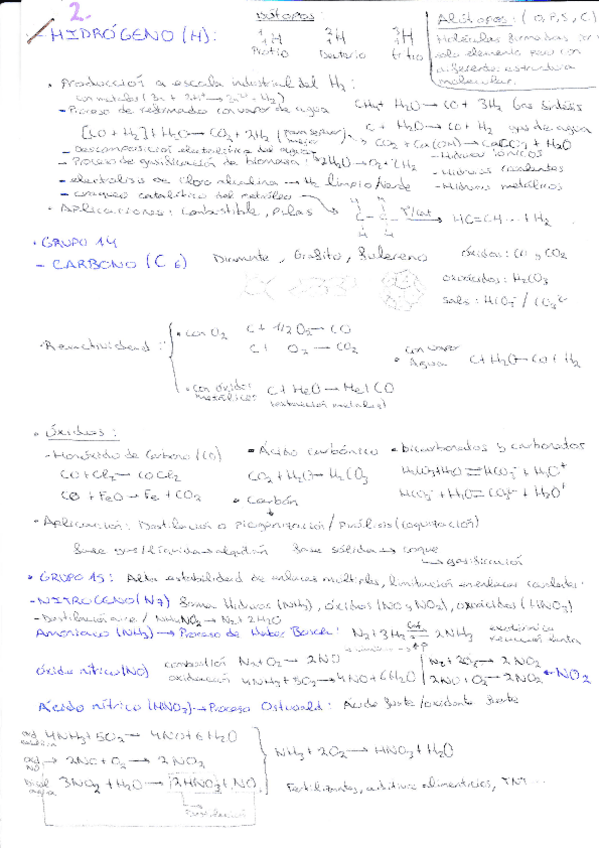 2.
Isótopos:
HIDRÓGENO (H): ¹₁H ²₁H ³₁H
Protio Deuterio tritio
Alótopos: (O, P, S, C)
Moléculas formadas por
solo elemento pero con
diferente estructura
molecular.
• Producción a escala industrial del H₂:
con metales (Zn + 2H⁺ → Zn²⁺ + H₂)
- Proceso de reformado con vapor de agua CH₄ + H₂O → CO + 3H₂ Gas síntesis
[CO + H₂] + H₂O → CO₂ + 2H₂ (para separar mejor) C + H₂O → CO + H₂ gas de agua
CO₂ + Ca(OH) → CaCO₃ + H₂O
- Descomposición electrolítica del agua
- Proceso de gasificación de biomasa: 2H₂O → O₂ + 2H₂
- Hidruros iónicos
- Hidruros covalentes
- Hidruros metálicos
- electrolisis de cloro alcalina → H₂ limpio/verde
- craqueo catalítico del petróleo
• Aplicaciones: Combustible, pilas
Tª/cat HC=CH... + H₂
• GRUPO 14
- CARBONO (C 6) Diamante, Grafito, Fulereno
óxidos: CO y CO₂
oxoácidos: H₂CO₃
sales: HCO₃⁻ / CO₃²⁻
Reactividad:
• con O₂ C + 1/2 O₂ → CO
C + O₂ → CO₂
• con vapor Agua C + H₂O → CO + H₂
• con óxidos metálicos C + MeO → Me + CO
(extracción metales)
• Óxidos:
- Monóxido de Carbono (CO) • Ácido carbónico • bicarbonatos y carbonatos
CO + Cl₂ → COCl₂ CO₂ + H₂O → H₂CO₃ H₂CO₃ + H₂O ⇌ HCO₃⁻ + H₃O⁺
CO + FeO → Fe + CO₂ • Carbón HCO₃⁻ + H₂O ⇌ CO₃²⁻ + H₃O⁺
• Aplicación: Destilación o Pirogenización / Pirólisis (coquización)
fase gas/líquida → alquitrán fase sólida → coque
→ gasificación
• GRUPO 15: Alta estabilidad de enlaces múltiples, limitación enlaces
- NITRÓGENO (N 7) forma hidruros (NH₃), óxidos (NO y NO₂), oxoácidos (HNO₃)
- Destilación aire / NH₄NO₂ → N₂ + 2H₂O
Amoniaco (NH₃) → Proceso de Haber Bosch: N₂ + 3H₂ ⇌ 2NH₃ exotérmica
reacción lenta
óxido nítrico (NO) combustión N₂ + O₂ → 2NO N₂ + 2O₂ → 2NO₂
oxidación 4NH₃ + 5O₂ → 4NO + 6H₂O 2NO + O₂ → 2NO₂ ← NO₂
Ácido nítrico (HNO₃) → Proceso Ostwald: Ácido fuerte/oxidante fuerte
4NH₃ + 5O₂ → 4NO + 6H₂O
2NO + O₂ → 2NO₂ NH₃ + 2O₂ → HNO₃ + H₂O
3NO₂ + H₂O → 2HNO₃ + NO Fertilizantes, aditivos alimenticios, TNT...